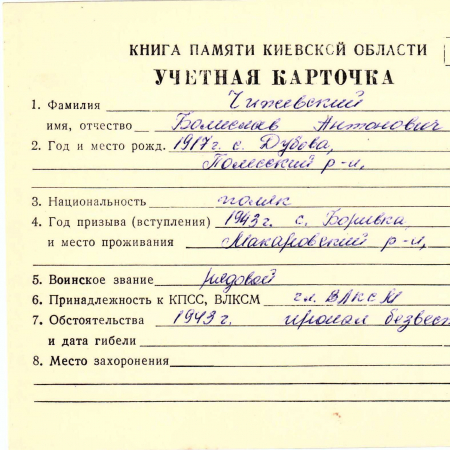 КНИГА ПАМЯТИ КИЕВСКОЙ ОБЛАСТИ
УЧЕТНАЯ КАРТОЧКА
1. Фамилия Чижевский
имя, отчество Болислав Антонович
2. Год и место рожд. 1917 г. с. Дубова,
Полесский р-н,
3. Национальность поляк
4. Год призыва (вступления) 1943 г. с. Боривка
и место проживания Макаровский р-н,
5. Воинское звание рядовой
6. Принадлежность к КПСС, ВЛКСМ чл. ВЛКСМ
7. Обстоятельства 1943 г. пропал безвест
и дата гибели
8. Место захоронения